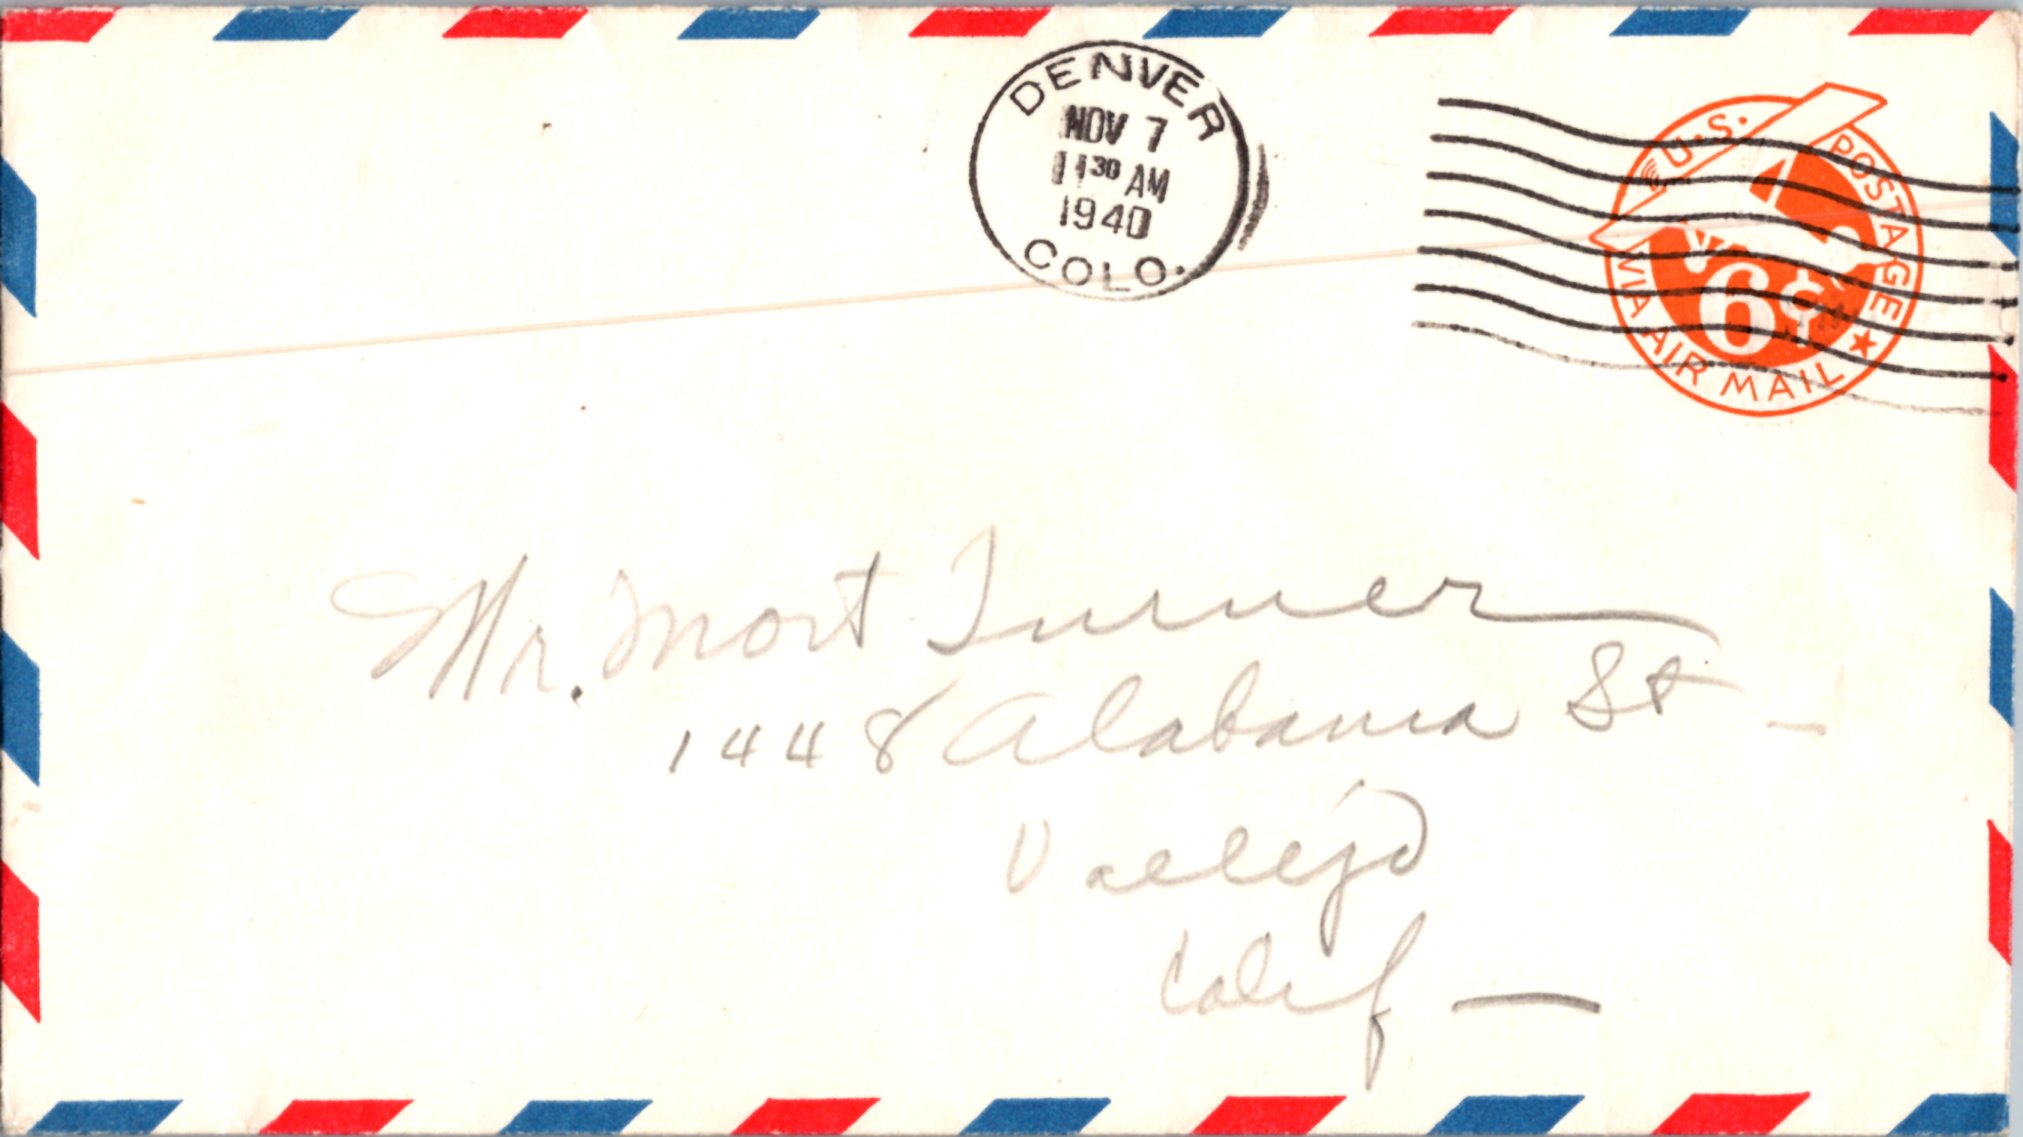 DENVER
NOV 7
11 30 AM
1940
COLO.
U.S. POSTAGE
6¢
VIA AIR MAIL
Mr. Mort Turner
1448 Alabama St -
Vallejo
Calif —